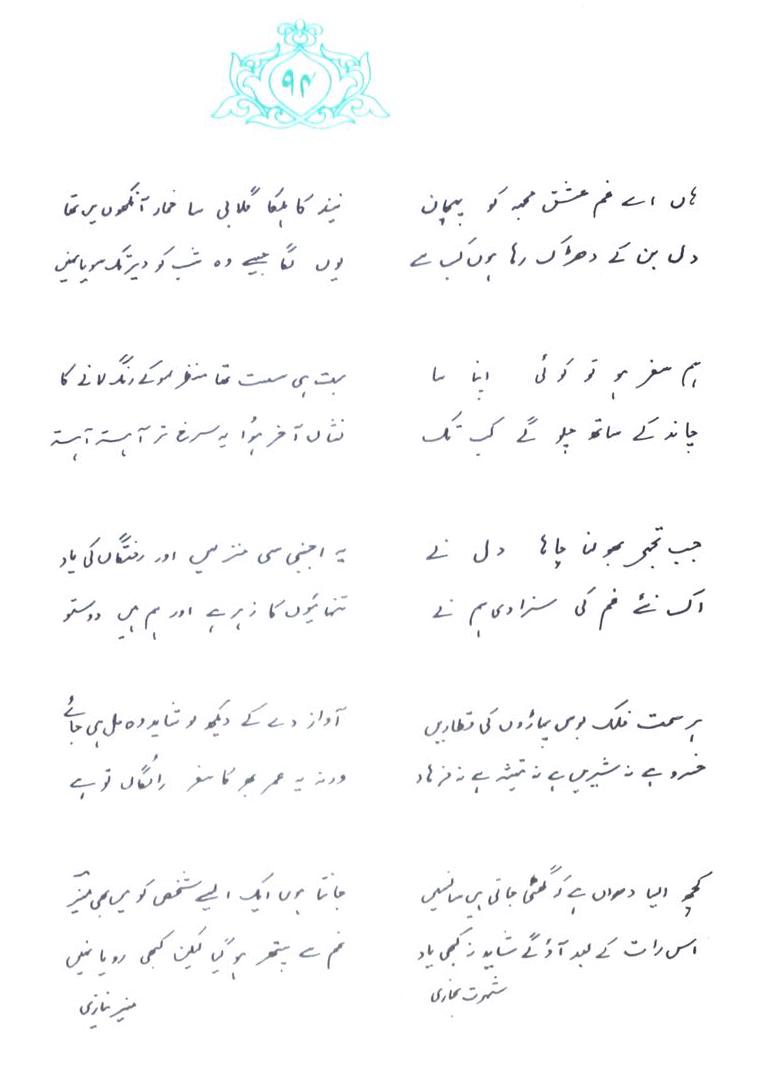 ۹۴
ہاں اے غم عشق مجھ کو پہچان
دل بن کے دھڑک رہا ہوں کب سے
ہم سفر ہو تو کوئی اپنا سا
چاند کے ساتھ چلو گے کب تک
جب تجھے بھولنا چاہا دل نے
اک نئے غم کی سزا دی ہم نے
ہر سمت فلک بوس پہاڑوں کی قطاریں
خسرو ہے نہ شیریں ہے نہ تیشہ ہے نہ فرہاد
کچھ ایسا دھواں ہے کہ گھٹی جاتی ہیں سانسیں
اس رات کے بعد آؤ گے شاید نہ کبھی یاد
شہرت بخاری
نیند کا ہلکا گلابی سا خمار آنکھوں میں تھا
یوں لگا جیسے وہ شب کو دیر تک سویا نہیں
بہت ہی سست تھا منظر لہو کے رنگ لانے کا
نشاں آخر ہؤا یہ سرخ تر آہستہ آہستہ
یہ اجنبی سی منزلیں اور رفتگاں کی یاد
تنہائیوں کا زہر ہے اور ہم ہیں دوستو
آواز دے کے دیکھ لو شاید وہ مل ہی جائے
ورنہ یہ عمر بھر کا سفر رائگاں تو ہے
جانتا ہوں ایک ایسے شخص کو میں بھی منیرؔ
غم سے پتھر ہو گیا لیکن کبھی رویا نہیں
منیر نیازی